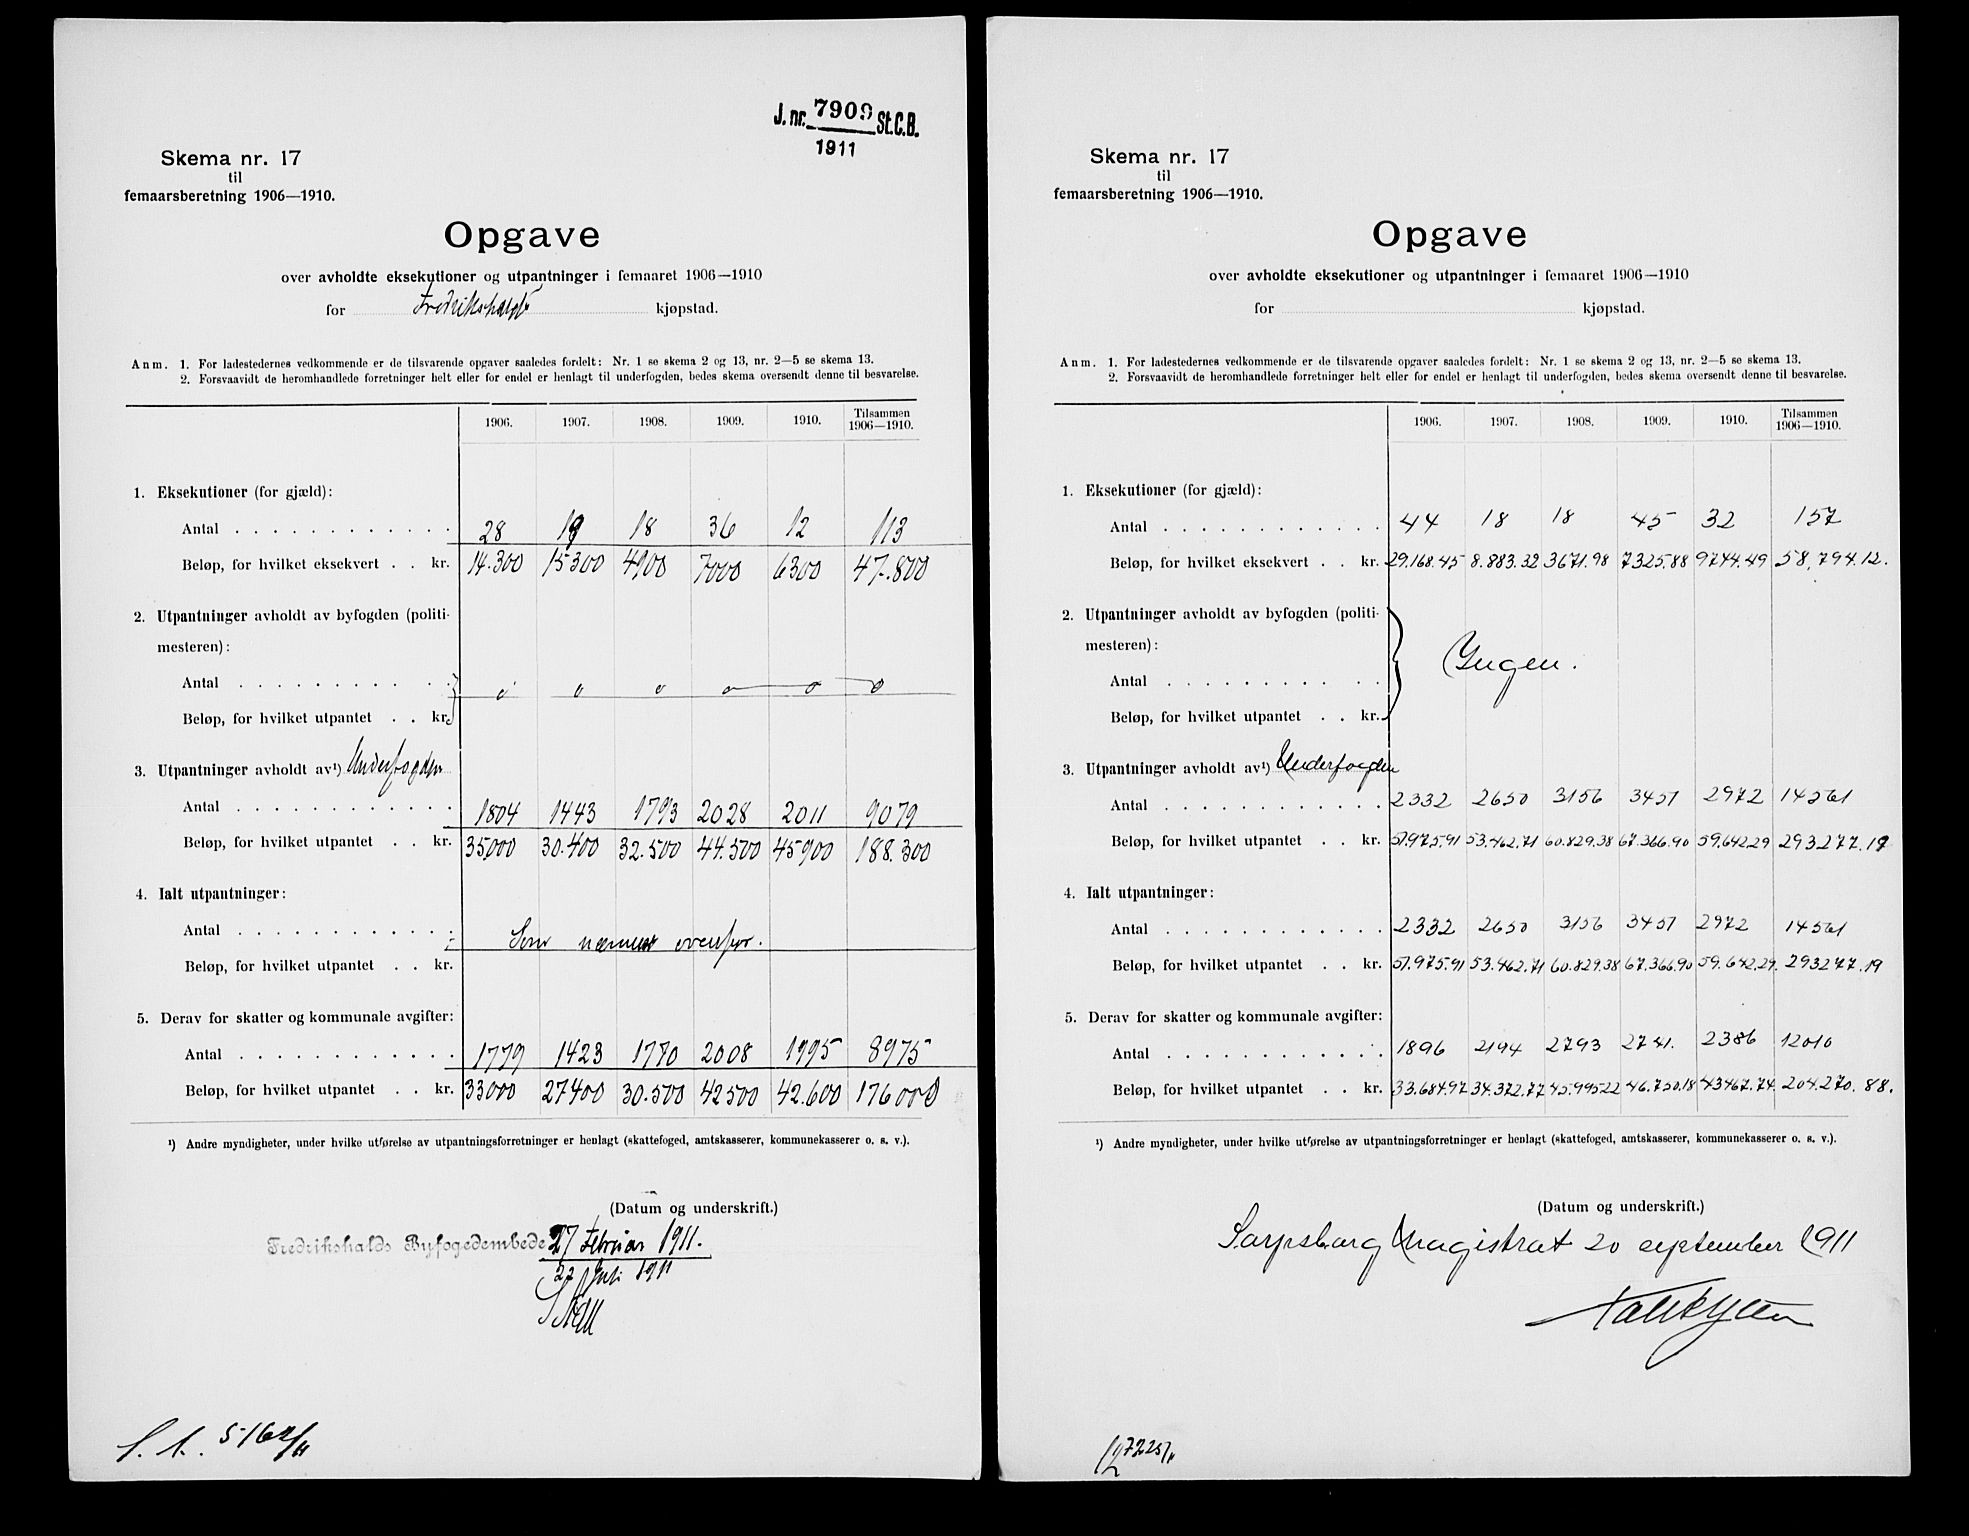 J. nr. 7909 St.C.B.
1911
Skema nr. 17
til
femaarsberetning 1906—1910.
Opgave
over avholdte eksekutioner og utpantninger i femaaret 1906—1910
for Fredrikshald kjøpstad.
Anm. 1. For ladestedernes vedkommende er de tilsvarende opgaver saaledes fordelt: Nr. 1 se skema 2 og 13, nr. 2—5 se skema 13.
2. Forsvaavidt de heromhandlede forretninger helt eller for endel er henlagt til underfogden, bedes skema oversendt denne til besvarelse.
1906. 1907. 1908. 1909. 1910. Tilsammen
1906—1910.
1. Eksekutioner (for gjæld):
Antal 28 19 18 36 12 113
Beløp, for hvilket eksekvert . . kr. 14.300 15300 4900 7000 6300 47.800
2. Utpantninger avholdt av byfogden (politi-
mesteren):
Antal 0 0 0 0 0 0
Beløp, for hvilket utpantet . . kr.
3. Utpantninger avholdt av¹) Underfogden
Antal 1804 1443 1793 2028 2011 9079
Beløp, for hvilket utpantet . . kr. 35000 30.400 32.500 44.500 45900 188.300
4. Ialt utpantninger:
Antal
Som nævnt ovenfor.
Beløp, for hvilket utpantet . . kr.
5. Derav for skatter og kommunale avgifter:
Antal 1779 1423 1770 2008 1995 8975
Beløp, for hvilket utpantet . . kr. 33000 27400 30.500 42500 42.600 176000
¹) Andre myndigheter, under hvilke utførelse av utpantningsforretninger er henlagt (skattefoged, amtskasserer, kommunekasserer o. s. v.).
(Datum og underskrift.)
Fredrikshalds Byfogedembede 27 Februar 1911.
22 Juli 1911
Skema nr. 17
til
femaarsberetning 1906—1910.
Opgave
over avholdte eksekutioner og utpantninger i femaaret 1906—1910
for kjøpstad.
Anm. 1. For ladestedernes vedkommende er de tilsvarende opgaver saaledes fordelt: Nr. 1 se skema 2 og 13, nr. 2—5 se skema 13.
2. Forsvaavidt de heromhandlede forretninger helt eller for endel er henlagt til underfogden, bedes skema oversendt denne til besvarelse.
1906. 1907. 1908. 1909. 1910. Tilsammen
1906—1910.
1. Eksekutioner (for gjæld):
Antal 44 18 18 45 32 157
Beløp, for hvilket eksekvert . . kr. 29.168.45 8.883.32 3671.98 7325.88 9744.49 58,794.12.
2. Utpantninger avholdt av byfogden (politi-
mesteren):
Ingen.
Antal
Beløp, for hvilket utpantet . . kr.
3. Utpantninger avholdt av¹) Underfogden
Antal 2332 2650 3156 3451 2972 14561
Beløp, for hvilket utpantet . . kr. 51.975.91 53.462.71 60.829.38 67.366.90 59.642.29 293277.19
4. Ialt utpantninger:
Antal 2332 2650 3156 3451 2972 14561
Beløp, for hvilket utpantet . . kr. 51.975.91 53.462.71 60.829.38 67.366.90 59.642.29. 293277.19
5. Derav for skatter og kommunale avgifter:
Antal 1896 2194 2793 2741. 2386 12010
Beløp, for hvilket utpantet . . kr. 33.684.97 34.372.77 45.995.22 46.750.18 43467.74 204.270.88.
¹) Andre myndigheter, under hvilke utførelse av utpantningsforretninger er henlagt (skattefoged, amtskasserer, kommunekasserer o. s. v.).
(Datum og underskrift.)
Sarpsborg Magistrat 20 september 1911